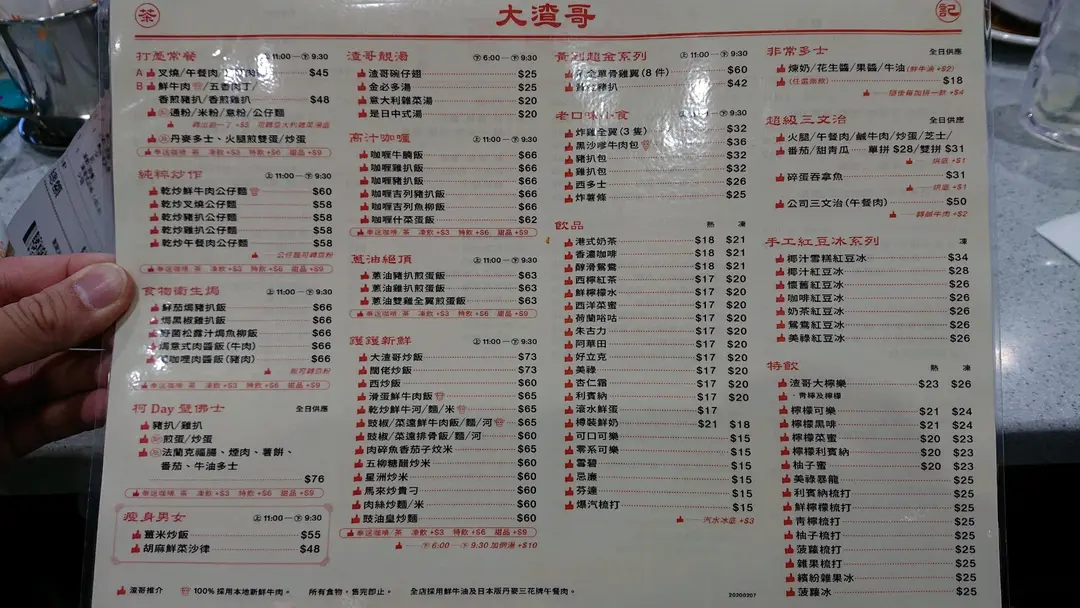 茶
大渣哥
記
打躉常餐 上11:00—下9:30
A 叉燒/午餐肉 $45
B 鮮牛肉/五香肉丁/
香煎豬扒/香煎雞扒 $48
通粉/米粉/意粉/公仔麵
丹麥多士、火腿煎雙蛋/炒蛋
奉送咖啡.茶 凍飲+$3 特飲+$6 甜品+$9
純粹炒作 上11:00—下9:30
乾炒鮮牛肉公仔麵 $60
乾炒叉燒公仔麵 $58
乾炒豬扒公仔麵 $58
乾炒雞扒公仔麵 $58
乾炒午餐肉公仔麵 $58
公仔麵可轉意粉
奉送咖啡.茶 凍飲+$3 特飲+$6 甜品+$9
食物衛生焗 上11:00—下9:30
鮮茄焗豬扒飯 $66
焗黑椒雞扒飯 $66
野菌松露汁焗魚柳飯 $66
焗意式肉醬飯(牛肉) $66
咖喱肉醬飯(豬肉) $66
飯可轉意粉
奉送咖啡.茶 凍飲+$3 特飲+$6 甜品+$9
柯Day躉佛士 全日供應
豬扒/雞扒
煎蛋/炒蛋
法蘭克福腸、煙肉、薯餅、
番茄、牛油多士
$76
奉送咖啡.茶 凍飲+$3 特飲+$6 甜品+$9
瘦身男女 上11:00—下9:30
薑米炒飯 $55
胡麻鮮菜沙律 $48
渣哥靚湯 下6:00—下9:30
渣哥碗仔翅 $25
金必多湯 $25
意大利雜菜湯 $20
是日中式湯 $20
高汁咖喱 上11:00—下9:30
咖喱牛腩飯 $66
咖喱雞扒飯 $66
咖喱豬扒飯 $66
咖喱吉列豬扒飯 $66
咖喱吉列魚柳飯 $66
咖喱什菜蛋飯 $62
奉送咖啡.茶 凍飲+$3 特飲+$6 甜品+$9
蔥油絕頂 上11:00—下9:30
蔥油豬扒煎蛋飯 $63
蔥油雞扒煎蛋飯 $63
蔥油雙雞全翼煎蛋飯 $63
奉送咖啡.茶 凍飲+$3 特飲+$6 甜品+$9
鑊鑊新鮮 上11:00—下9:30
大渣哥炒飯 $73
闊佬炒飯 $73
西炒飯 $60
滑蛋鮮牛肉飯 $65
乾炒鮮牛河/麵/米 $65
豉椒/菜遠鮮牛肉飯/麵/河 $65
豉椒/菜遠排骨飯/麵/河 $60
肉碎魚香茄子炆米 $65
五柳糖醋炒米 $60
星洲炒米 $60
馬來炒貴刁 $60
肉絲炒麵/米 $60
豉油皇炒麵 $60
奉送咖啡.茶 凍飲+$3 特飲+$6 甜品+$9
下6:00—下9:30 加例湯+$10
超金系列 上11:00—下9:30
金單骨雞翼(8件) $60
豬扒 $42
老口味小食
炸雞全翼(3隻) $32
黑沙嗲牛肉包 $36
豬扒包 $32
雞扒包 $32
西多士 $26
炸薯條 $25
飲品 熱 凍
港式奶茶 $18 $21
香濃咖啡 $18 $21
醇滑鴛鴦 $18 $21
西檸紅茶 $17 $20
鮮檸檬水 $17 $20
西洋菜蜜 $17 $20
荷蘭哈咕 $17 $20
朱古力 $17 $20
阿華田 $17 $20
好立克 $17 $20
美祿 $17 $20
杏仁霜 $17 $20
利賓納 $17 $20
滾水鮮蛋 $17
樽裝鮮奶 $21 $18
可口可樂 $15
零系可樂 $15
雪碧 $15
忌廉 $15
芬達 $15
爆汽梳打 $15
汽水冰底+$3
非常多士 全日供應
煉奶/花生醬/果醬/牛油(鮮牛油+$2)
(任選兩款) $18
隨後餐咖啡一款+$4
超級三文治 全日供應
火腿/午餐肉/鹹牛肉/炒蛋/芝士/
番茄/甜青瓜 單拼$28/雙拼$31
烘底+$1
碎蛋吞拿魚 $31
烘底+$1
公司三文治(午餐肉) $50
轉鹹牛肉+$2
手工紅豆冰系列 凍
椰汁雪糕紅豆冰 $34
椰汁紅豆冰 $28
懷舊紅豆冰 $26
咖啡紅豆冰 $26
奶茶紅豆冰 $26
鴛鴦紅豆冰 $26
美祿紅豆冰 $26
特飲 熱 凍
渣哥大檸樂 $23 $26
·青檸及檸檬
檸檬可樂 $21 $24
檸檬黑啡 $21 $24
檸檬菜蜜 $20 $23
檸檬利賓納 $20 $23
柚子蜜 $20 $23
美祿暴龍 $25
利賓納梳打 $25
鮮檸檬梳打 $25
青檸梳打 $25
柚子梳打 $25
菠蘿梳打 $25
雜果梳打 $25
繽紛雜果冰 $25
菠蘿冰 $25
渣哥推介 100%採用本地新鮮牛肉。 所有食物，售完即止。 全店採用鮮牛油及日本版丹麥三花牌午餐肉。
20200207